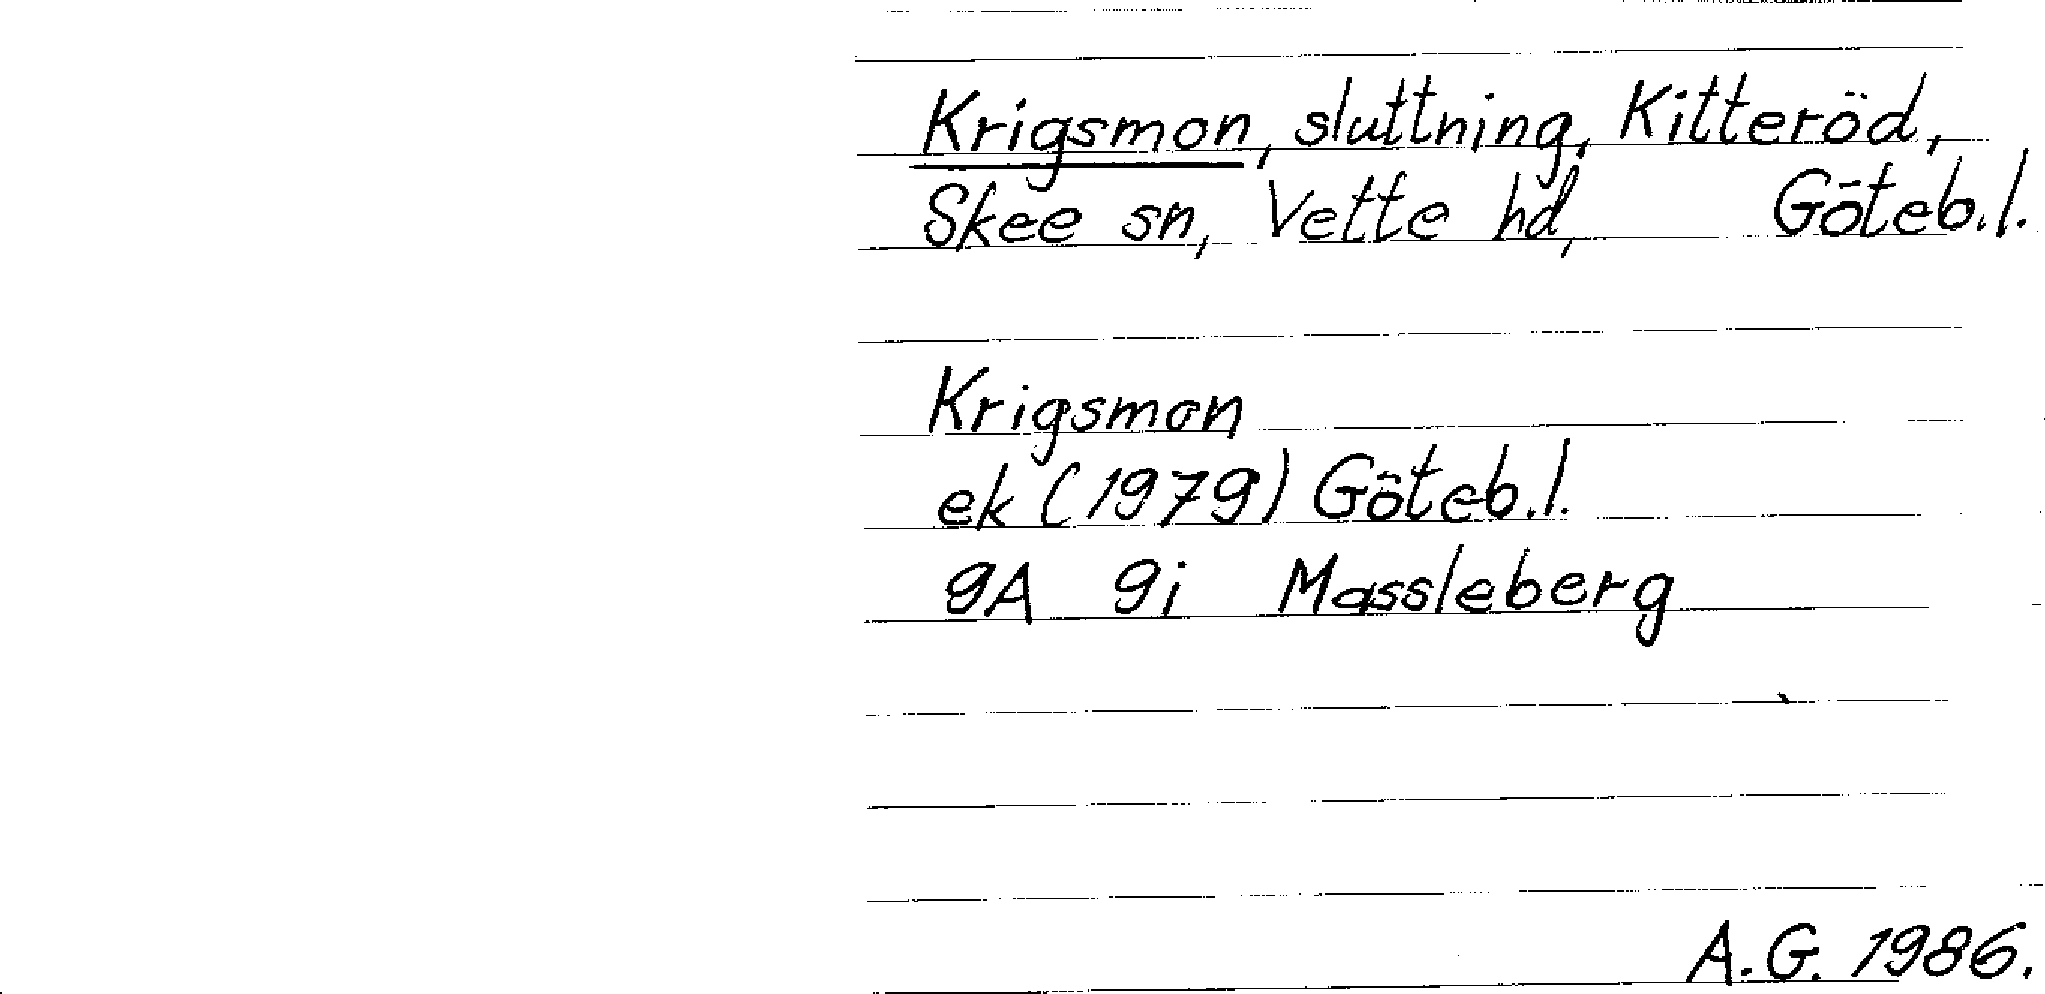 Krigsmon, sluttning, Kitteröd,
Skee sn, Vette hd, Göteb.l.
Krigsmon
ek (1979) Göteb.l.
9A 9i Massleberg
A.G. 1986.